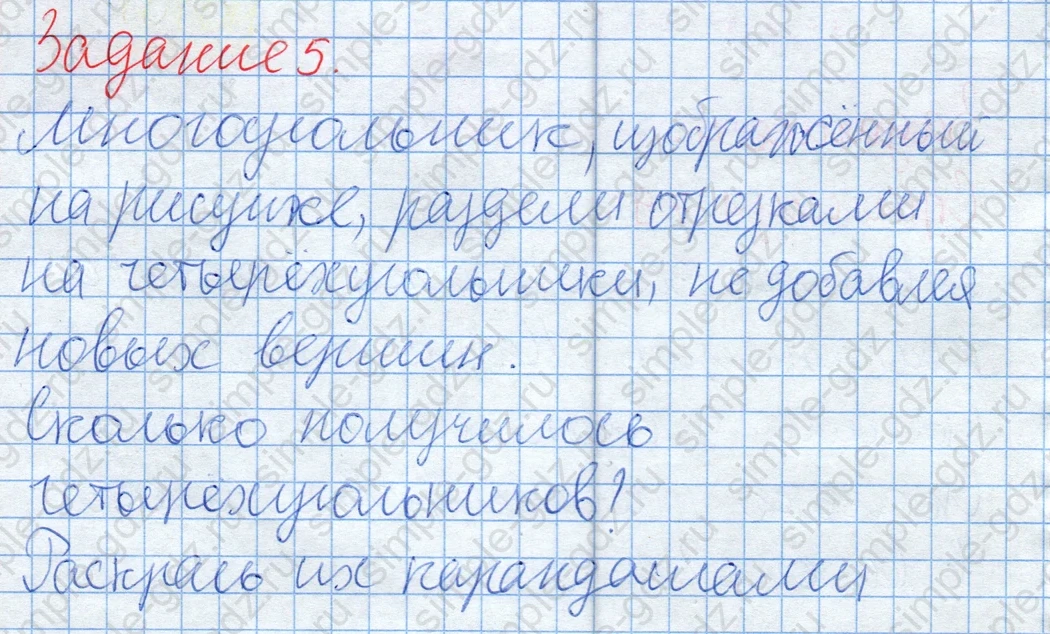 Задание 5.
Многоугольник, изображённый
на рисунке, раздели отрезками
на четырёхугольники, не добавляя
новых вершин.
Сколько получилось
четырёхугольников?
Раскрась их карандашами